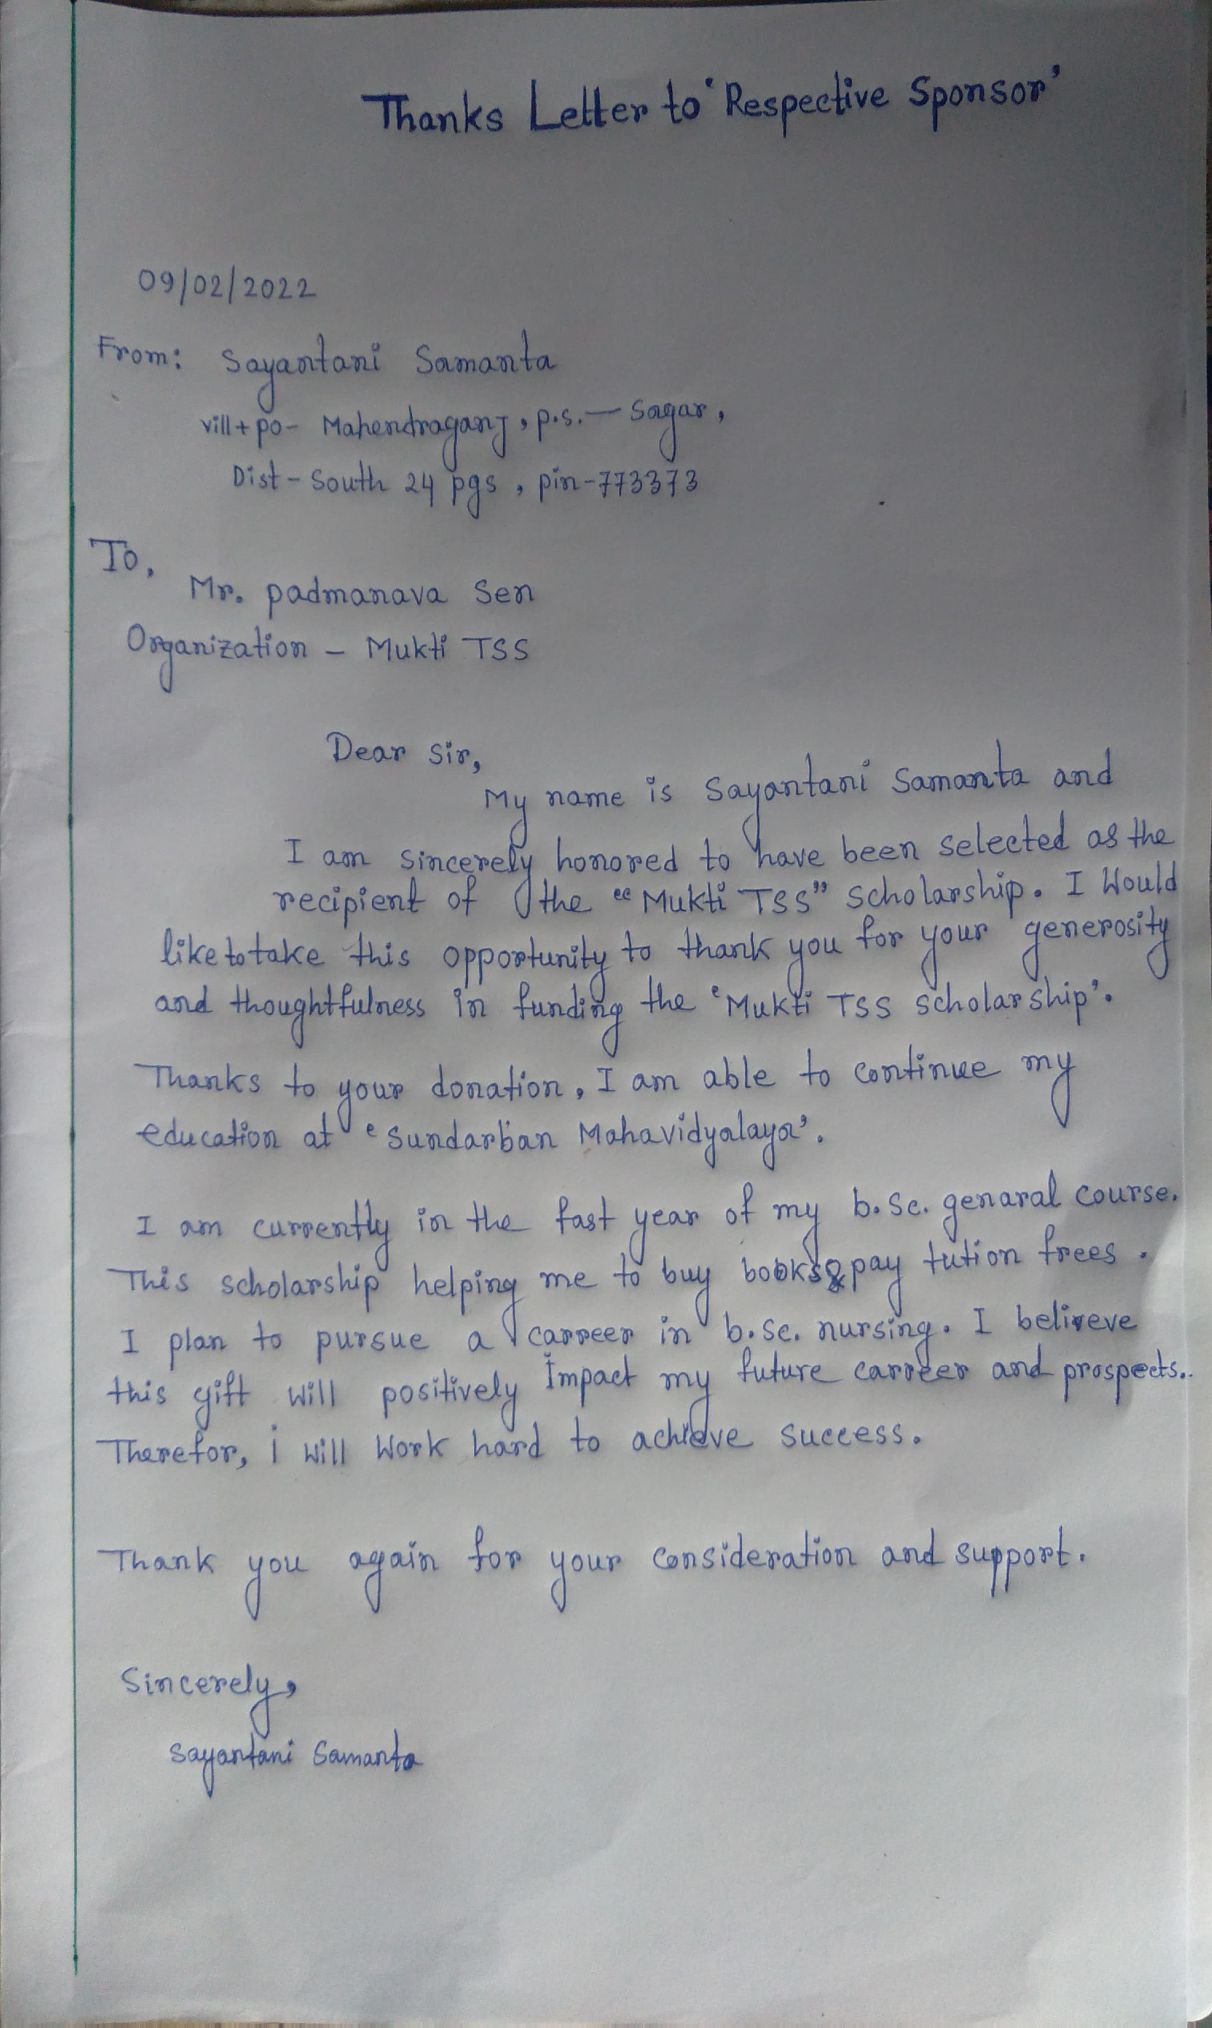 Thanks Letter to 'Respective Sponsor'
09/02/2022
From: Sayantani Samanta
vill + po - Mahendraganj, p.s. — Sagar,
Dist - South 24 pgs, pin - 773373
To,
Mr. padmanava Sen
Organization - Mukti TSS
Dear Sir,
My name is Sayantani Samanta and
I am sincerely honored to have been selected as the
recipient of the "Mukti TSS" Scholarship. I Would
like to take this opportunity to thank you for your generosity
and thoughtfulness in funding the 'Mukti TSS scholarship'.
Thanks to your donation, I am able to continue my
education at 'Sundarban Mahavidyalaya'.
I am currently in the fast year of my b.sc. genaral course.
This scholarship helping me to buy books & pay tution frees.
I plan to pursue a carreer in b.sc. nursing. I belireve
this gift will positively Impact my future carreer and prospects..
Therefor, i will Work hard to achieve success.
Thank you again for your consideration and support.
Sincerely,
Sayantani Samanta